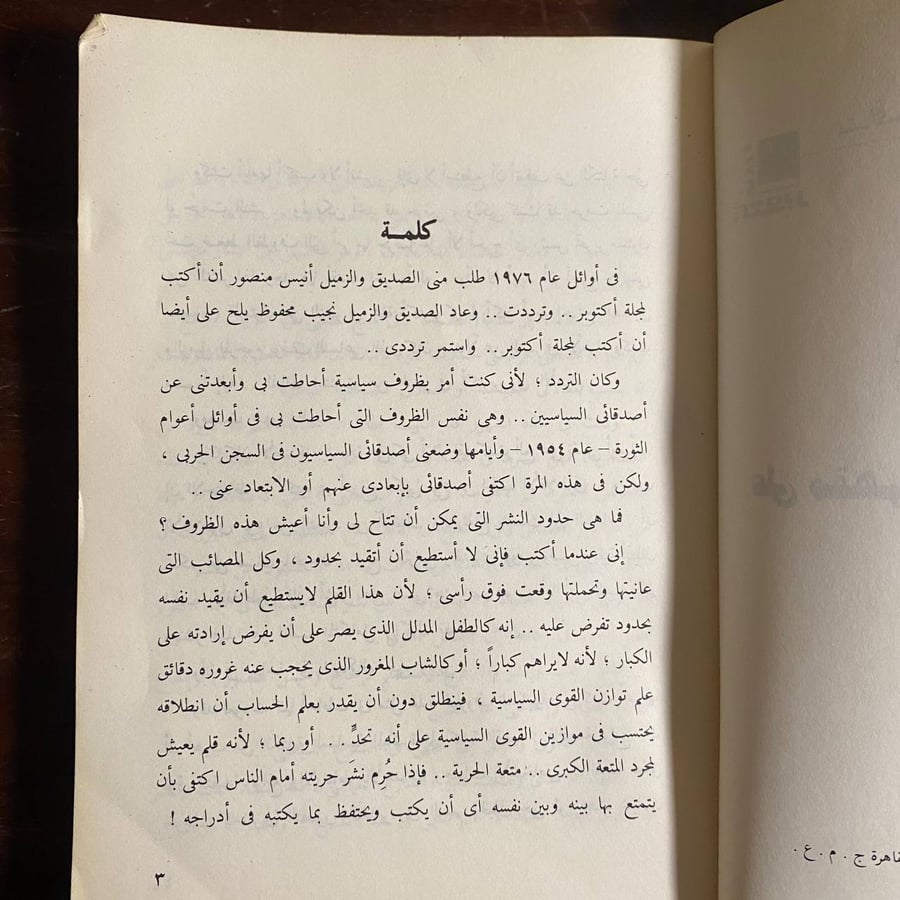 كلمـة
فى أوائل عام ١٩٧٦ طلب منى الصديق والزميل أنيس منصور أن أكتب
لمجلة أكتوبر .. وترددت .. وعاد الصديق والزميل نجيب محفوظ يلح على أيضا
أن أكتب لمجلة أكتوبر .. واستمر ترددى ..
وكان التردد ؛ لأنى كنت أمر بظروف سياسية أحاطت بى وأبعدتنى عن
أصدقائى السياسيين .. وهى نفس الظروف التى أحاطت بى فى أوائل أعوام
الثورة – عام ١٩٥٤ – وأيامها وضعنى أصدقائى السياسيون فى السجن الحربى ،
ولكن فى هذه المرة اكتفى أصدقائى بإبعادى عنهم أو الابتعاد عنى ..
فما هى حدود النشر التى يمكن أن تتاح لى وأنا أعيش هذه الظروف ؟
إنى عندما أكتب فإنى لا أستطيع أن أتقيد بحدود ، وكل المصائب التى
عانيتها وتحملتها وقعت فوق رأسى ؛ لأن هذا القلم لايستطيع أن يقيد نفسه
بحدود تفرض عليه .. إنه كالطفل المدلل الذى يصر على أن يفرض إرادته على
الكبار ؛ لأنه لايراهم كباراً ؛ أو كالشاب المغرور الذى يحجب عنه غروره دقائق
علم توازن القوى السياسية ، فينطلق دون أن يقدر بعلم الحساب أن انطلاقه
يحتسب فى موازين القوى السياسية على أنه تحدٍّ .. أو ربما ؛ لأنه قلم يعيش
لمجرد المتعة الكبرى .. متعة الحرية .. فإذا حُرِم نشَر حريته أمام الناس اكتفى بأن
يتمتع بها بينه وبين نفسه أى أن يكتب ويحتفظ بما يكتبه فى أدراجه !
٣
ج . م . ع .